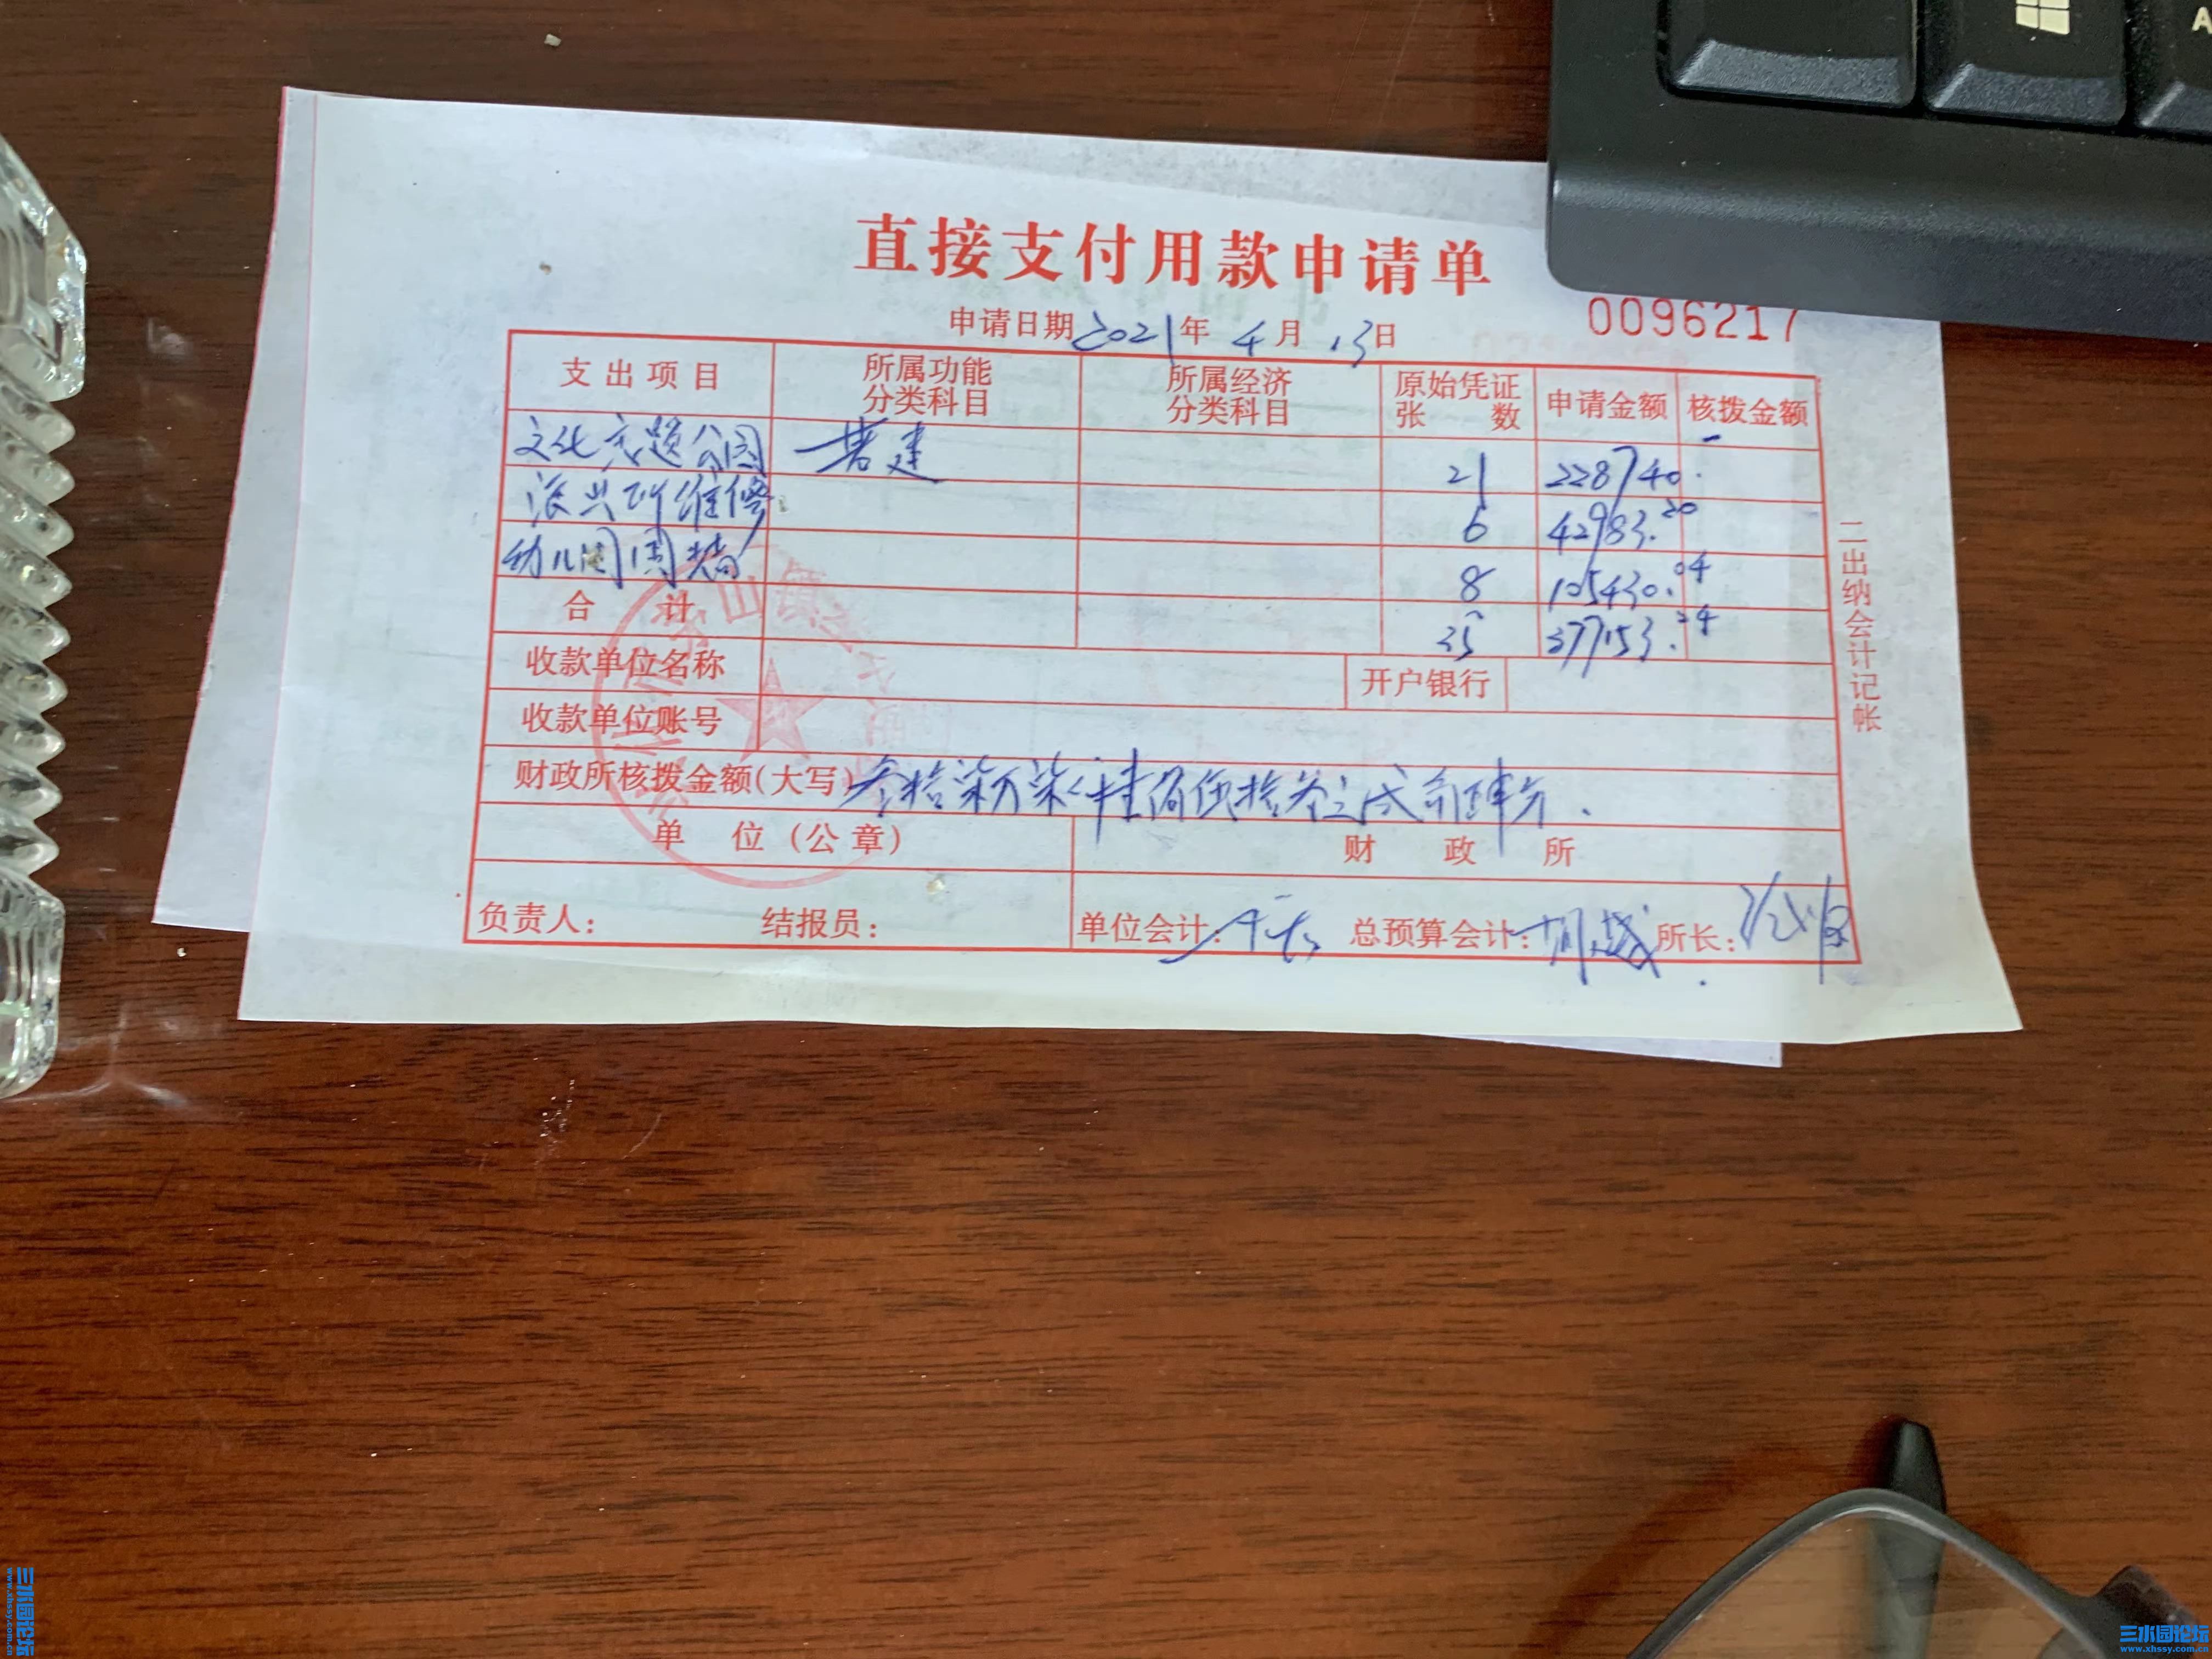 直接支付用款申请单
0096217
申请日期 2021 年 4 月 13 日
支出项目 所属功能分类科目 所属经济分类科目 原始凭证张数 申请金额 核拨金额
文化主题公园 基建 21 228740.-
派出所维修 6 42983.20
幼儿园围墙 8 105430.04
合计 35 377153.24
收款单位名称 开户银行
收款单位账号
财政所核拨金额(大写) 叁拾柒万柒仟壹佰伍拾叁元贰角肆分
单位(公章) 财政所
负责人: 结报员: 单位会计: 总预算会计: 所长:
二出纳会计记帐
三水园论坛
www.xhssy.com.cn
三水园论坛
www.xhssy.com.cn